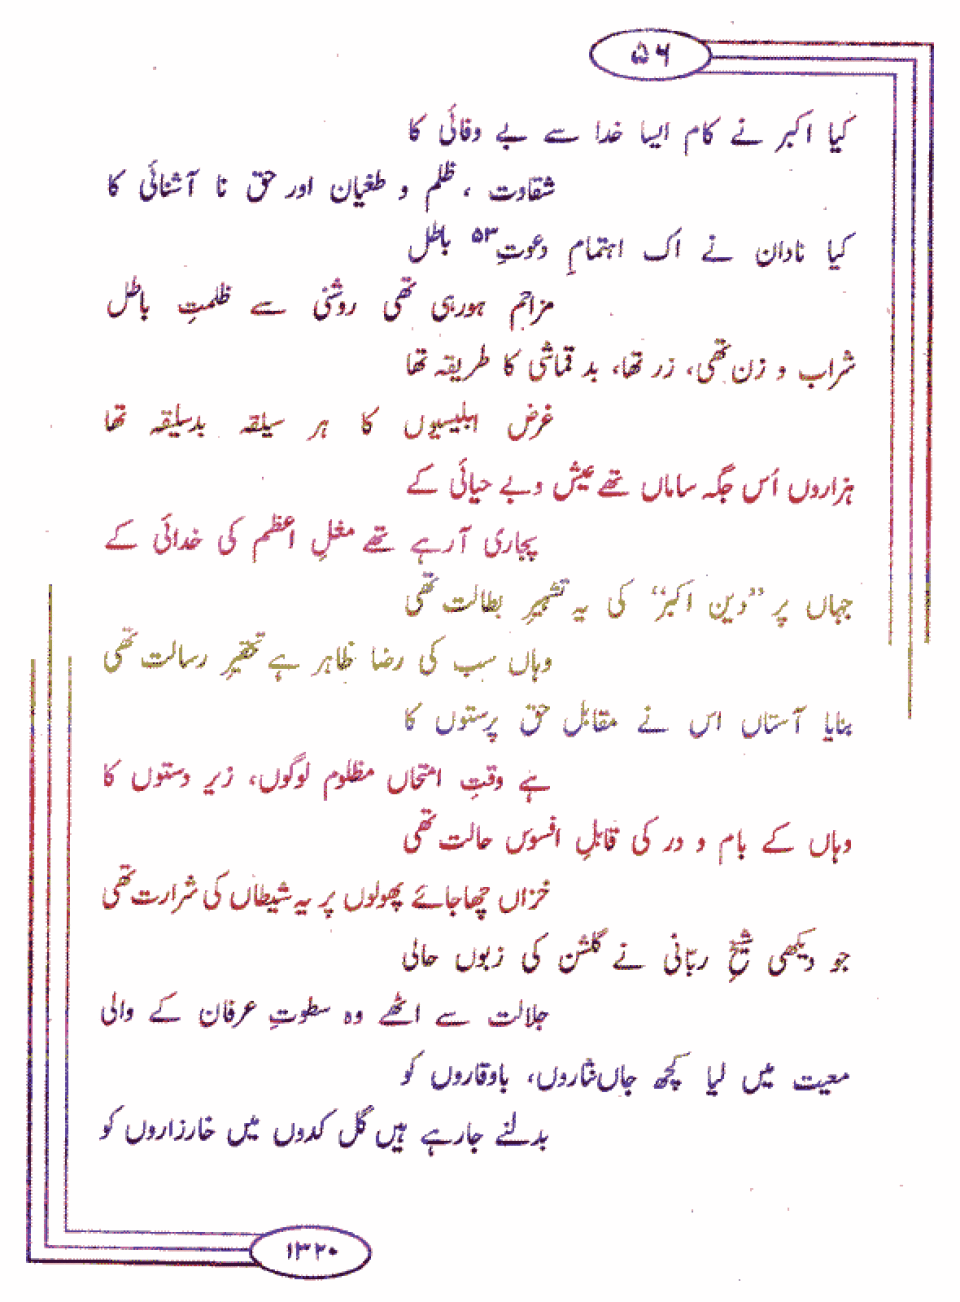 ۵۶
کیا اکبر نے کام ایسا خدا سے بے وفائی کا
شقاوت ، ظلم و طغیان اور حق نا آشنائی کا
کیا نادان نے اک اہتمامِ دعوتِ۵۳ باطل
مزاحم ہورہی تھی روشنی سے ظلمتِ باطل
شراب و زن تھی، زر تھا، بد قماشی کا طریقہ تھا
غرض ابلیسیوں کا ہر سیلقہ بدسلیقہ تھا
ہزاروں اُس جگہ ساماں تھے عیش و بے حیائی کے
پجاری آرہے تھے مغلِ اعظم کی خدائی کے
جہاں پر ”دین اکبر“ کی یہ تشہیرِ بطالت تھی
وہاں سب کی رضا ظاہر ہے تحقیرِ رسالت تھی
بنایا آستاں اس نے مقابل حق پرستوں کا
ہے وقتِ امتحاں مظلوم لوگوں، زیر دستوں کا
وہاں کے بام و در کی قابلِ افسوس حالت تھی
خزاں چھاجائے پھولوں پر یہ شیطاں کی شرارت تھی
جو دیکھی شیخِ ربّانی نے گلشن کی زبوں حالی
جلالت سے اٹھے وہ سطوتِ عرفان کے والی
معیت میں لیا کچھ جاں نثاروں، باوقاروں کو
بدلنے جارہے ہیں گل کدوں میں خارزاروں کو
۱۳۲۰